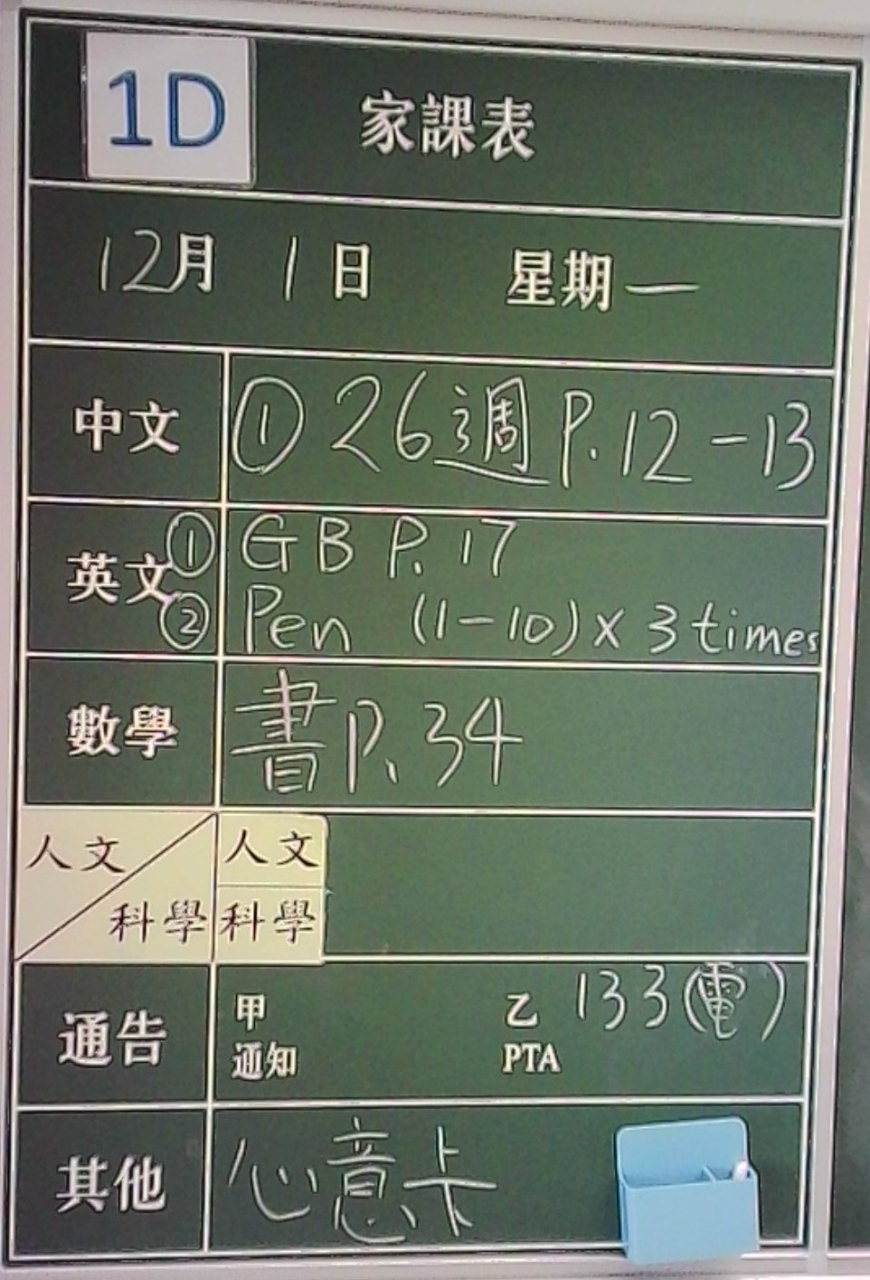 1D 家課表
12月 1日 星期一
中文 ① 26週 P.12-13
英文 ① GB P.17
② Pen (1-10) x 3 times
數學 書P.34
人文 人文
科學 科學
通告 甲 乙 133(電)
通知 PTA
其他 心意卡